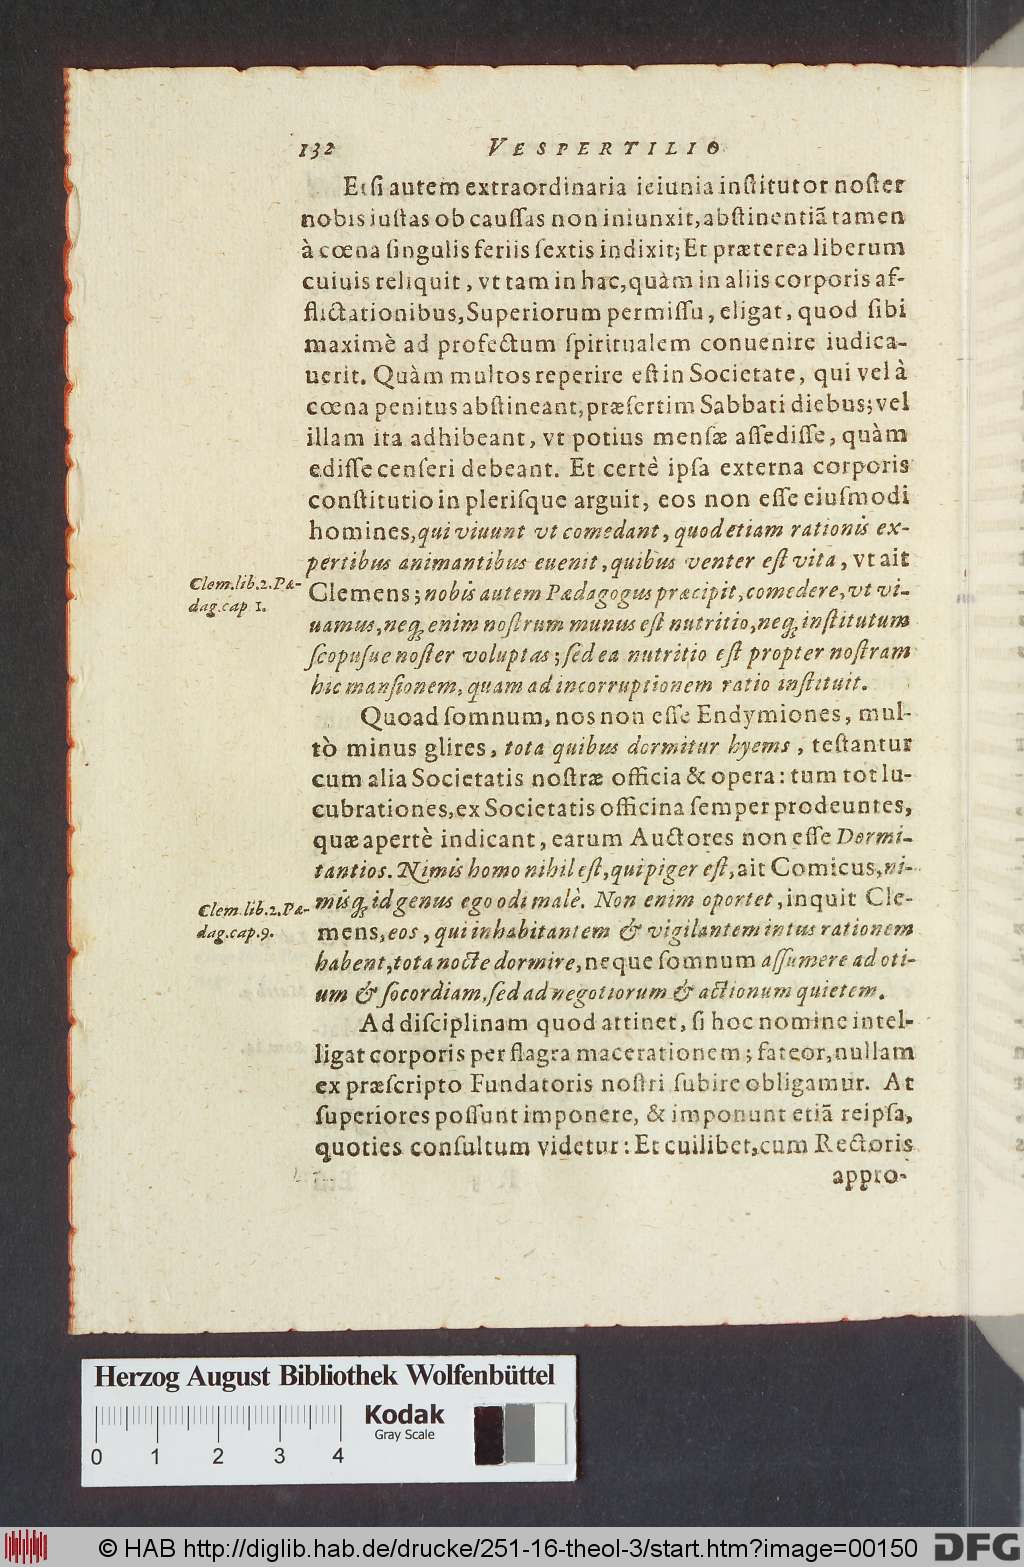 132 VESPERTILIO
Etsi autem extraordinaria ieiunia institutor noster
nobis iustas ob caussas non iniunxit, abstinentiã tamen
à cœna singulis feriis sextis indixit; Et præterea liberum
cuiuis reliquit, vt tam in hac, quàm in aliis corporis af-
flictationibus, Superiorum permissu, eligat, quod sibi
maximè ad profectum spiritualem conuenire iudica-
uerit. Quàm multos reperire est in Societate, qui vel à
cœna penitus abstineant, præsertim Sabbati diebus; vel
illam ita adhibeant, vt potius mensæ assedisse, quàm
edisse censeri debeant. Et certè ipsa externa corporis
constitutio in plerisque arguit, eos non esse eiusmodi
homines, qui viuunt vt comedant, quod etiam rationis ex-
pertibus animantibus euenit, quibus venter est vita, vt ait
Clem. lib. 2. Pæ-
dag. cap 1.
Clemens; nobis autem Pædagogus præcipit, comedere, vt vi-
uamus, neq; enim nostrum munus est nutritio, neq; institutum
scopusue noster voluptas; sed ea nutritio est propter nostram
hic mansionem, quam ad incorruptionem ratio instituit.
Quoad somnum, nos non esse Endymiones, mul-
tò minus glires, tota quibus dormitur hyems, testantur
cum alia Societatis nostræ officia & opera: tum tot lu-
cubrationes, ex Societatis officina semper prodeuntes,
quæ apertè indicant, earum Auctores non esse Dormi-
tantios. Nimis homo nihil est, qui piger est, ait Comicus, ni-
Clem. lib. 2. Pæ-
dag. cap. 9.
misq; id genus ego odi malè. Non enim oportet, inquit Cle-
mens, eos, qui inhabitantem & vigilantem intus rationem
habent, tota nocte dormire, neque somnum assumere ad oti-
um & socordiam, sed ad negotiorum & actionum quietem.
Ad disciplinam quod attinet, si hoc nomine intel-
ligat corporis per flagra macerationem; fateor, nullam
ex præscripto Fundatoris nostri subire obligamur. At
superiores possunt imponere, & imponunt etiã reipsa,
quoties consultum videtur: Et cuilibet, cum Rectoris
appro-
Herzog August Bibliothek Wolfenbüttel
Kodak
Gray Scale
0 1 2 3 4
© HAB http://diglib.hab.de/drucke/251-16-theol-3/start.htm?image=00150 DFG